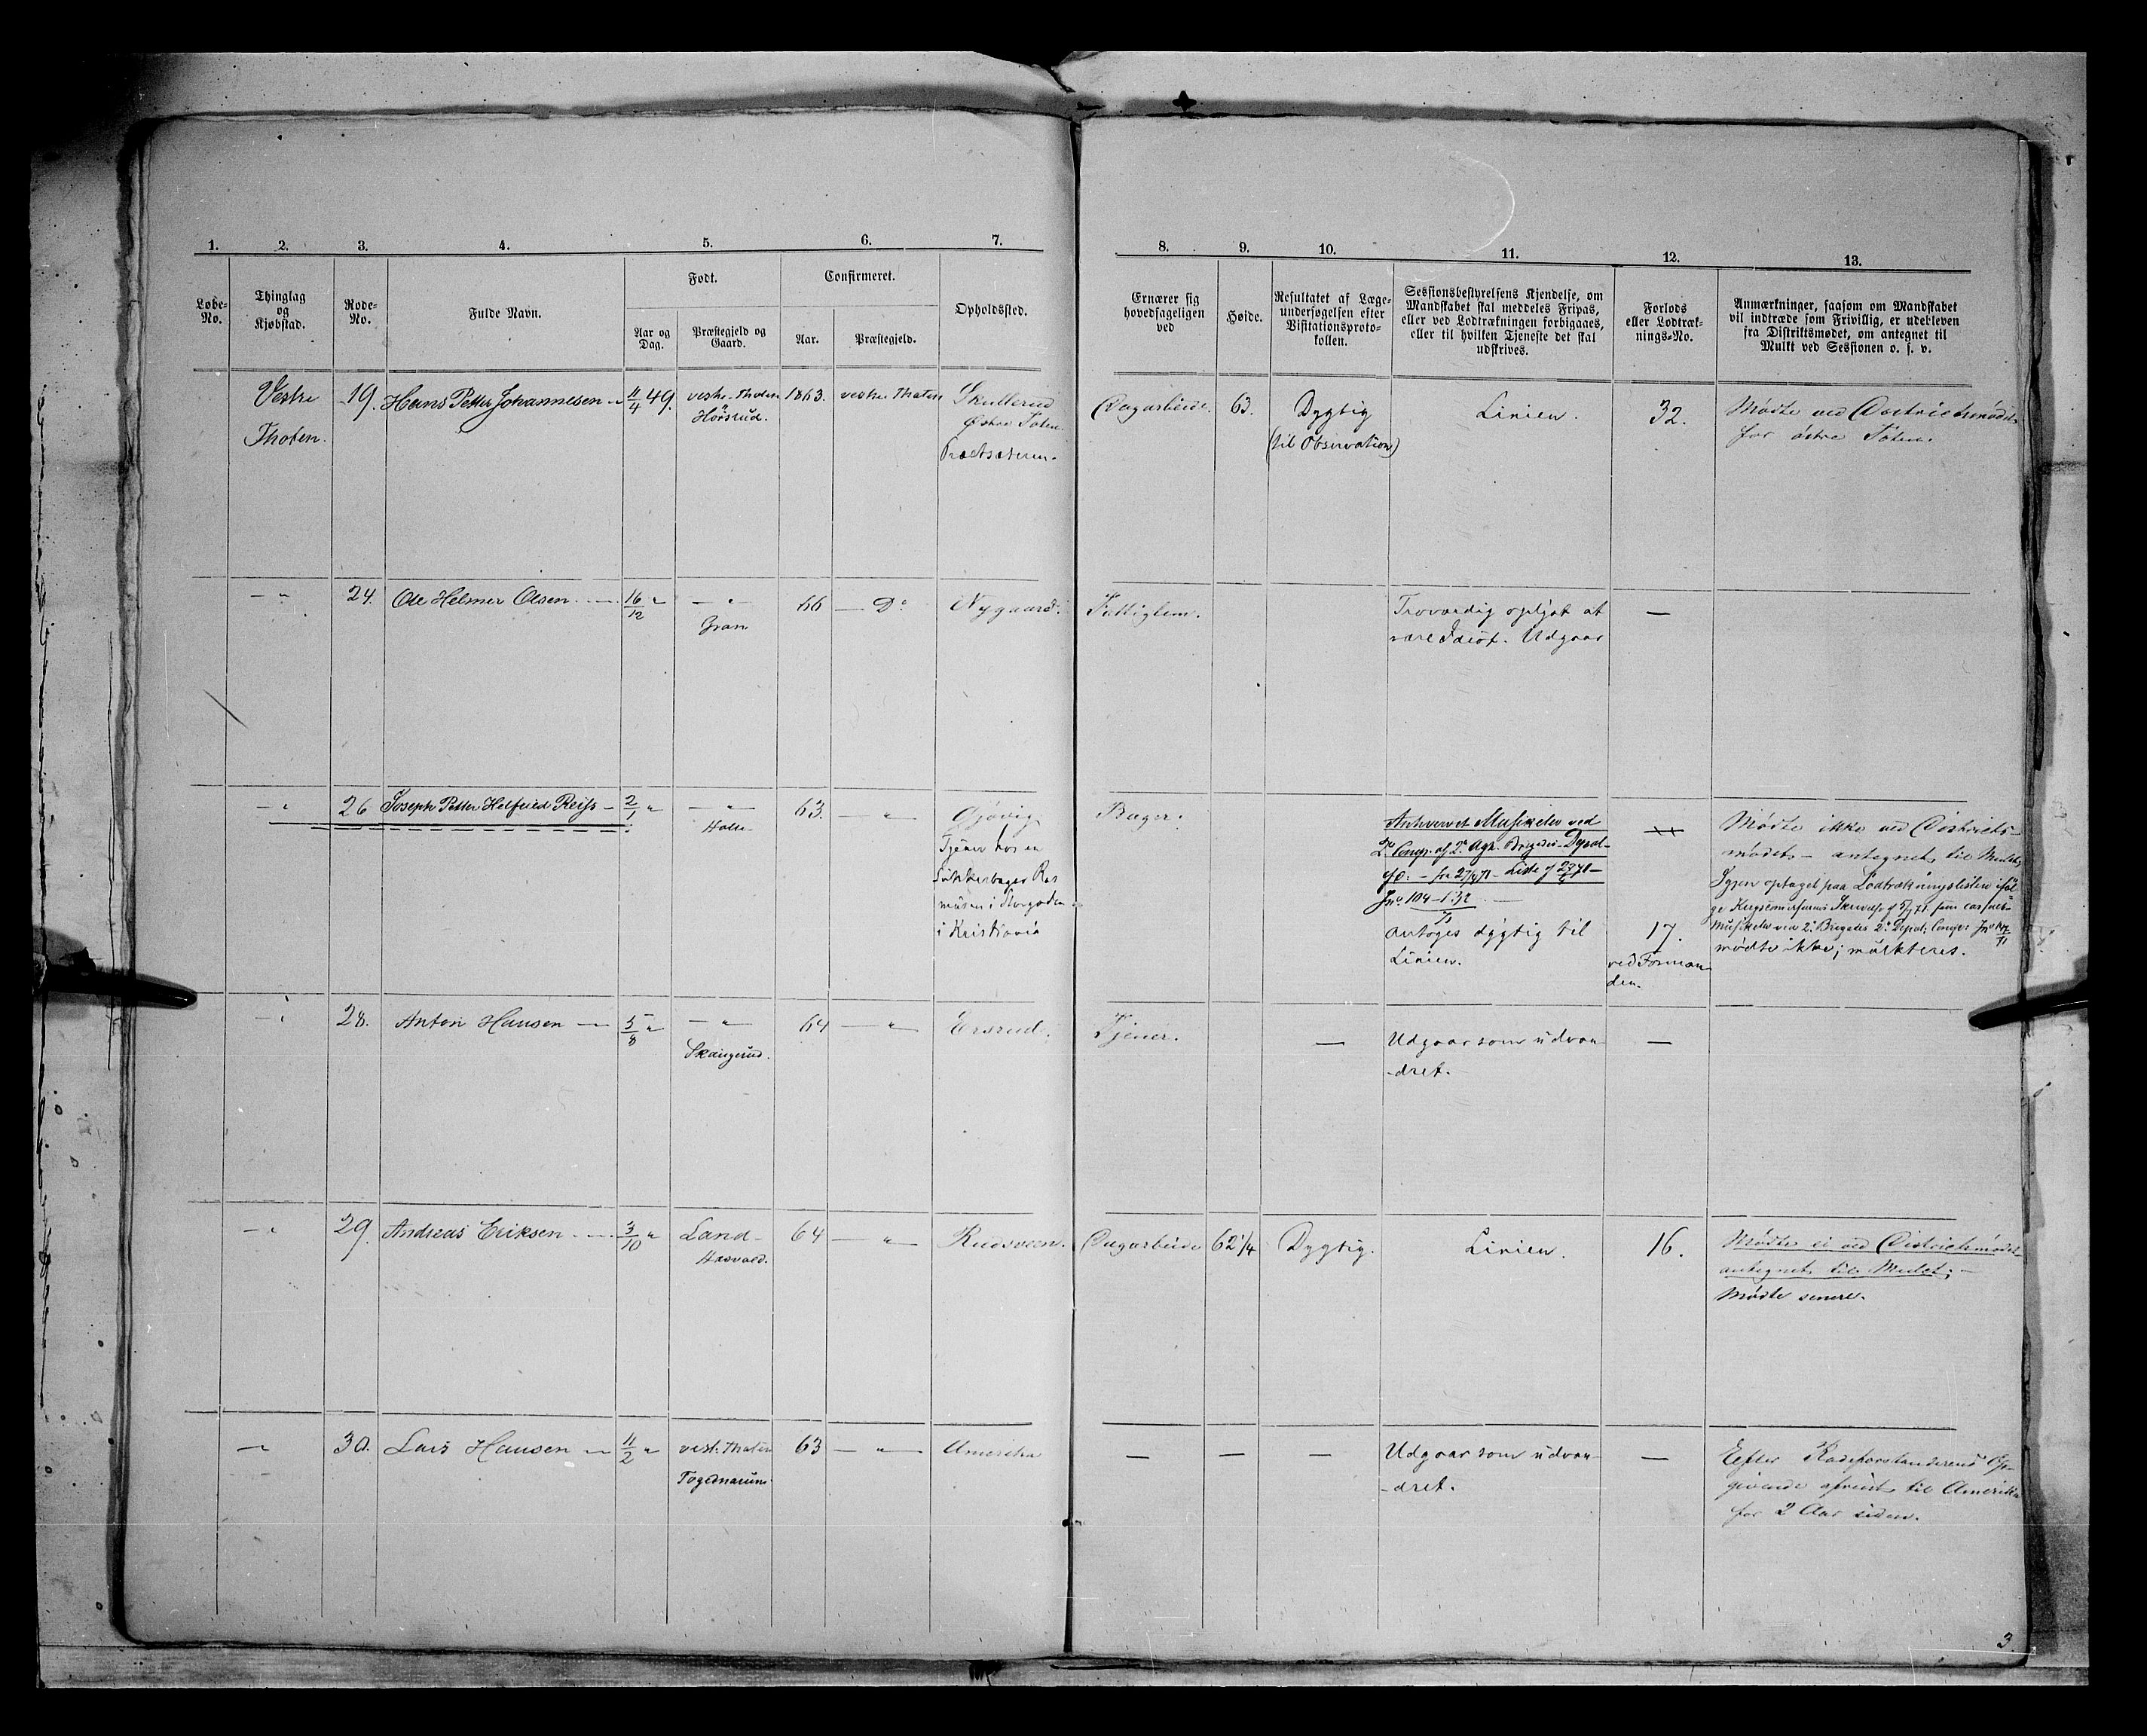 1. 2. 3. 4. 5. 6. 7. 8. 9. 10. 11. 12. 13.
Løbe-No.
Thinglag og Kjøbstad.
Rode-No.
Fulde Navn.
Født.
Aar og Dag.
Præstegjeld og Gaard.
Confirmeret.
Aar.
Præstegjeld.
Opholdssted.
Ernærer sig hovedsageligen ved
Høide.
Resultatet af Læge-
undersøgelsen efter
Visitationsproto-
kollen.
Sessionsbestyrelsens Kjendelse, om
Mandskabet skal meddeles Fripas,
eller ved Lodtrækningen forbigaaes,
eller til hvilken Tjeneste det skal
udskrives.
Forlods
eller Lodtræk-
nings-No.
Anmærkninger, saasom om Mandskabet
vil indtræde som Frivillig, er udebleven
fra Distriktsmødet, om antegnet til
Mulkt ved Sessionen o. s. v.
Vestre Thoten.
19. Hans Petter Johannesen
11/4 49.
vestre Thoten
Hörsrud.
1863. vestre Thoten
Skullerud
Østre Toten
Dagarbeide. 63.
Dygtig
(til Observation)
Linien.
32.
Mødte ved Districtsmødet
for østre Toten.
24. Ole Helmer Olsen
16/12 "
— " —
Gran
66 — Do
Nygaard.
Fattiglem.
Troværdig oplyst at
være Idiot. Udgaar
—
26 Joseph Petter Helfried Reiss
2/1 "
— " —
63. — " —
Gjøvig
Tjener hos en
Sukkerbager Ras
mussen i Storgaden
i Kristiania
Bager.
Anhvervet Musikelev ved
2. Comp. af 2. Agh. Brigades Depot
Jno 104
Antoges dygtig til
Linien.
17.
ved Forman
den.
Mødte ikke ved Districts-
mødet — antegnet til Mulct
Igjen optaget paa Lodtrækningslisten iføl
ge
Musikelev ved 2. Brigades 2. Depot. Comp:
mødte ikke; mulkteres.
28. Anton Hansen
5/8 "
— " —
Skangerud.
64 — " —
Ersrud.
Tjener.
—
Udgaar som udvan
-dret.
—
29. Andreas Eriksen
3/10 "
Land-
Hasvold.
64 — " —
Rudsveen.
Dagarbeide 62 1/4
Dygtig.
Linien.
16.
Mødte ei ved Districtsmødet
antegnet til Mulct; —
Mødte senere.
30. Lars Hansen
11/2 "
vest. Thoten
63 — " —
Amerika
— — —
Udgaar som udvan-
-dret.
—
Efter Rodeforstanderens Op-
givende afreist til Amerika
for 2 Aar siden.
3.